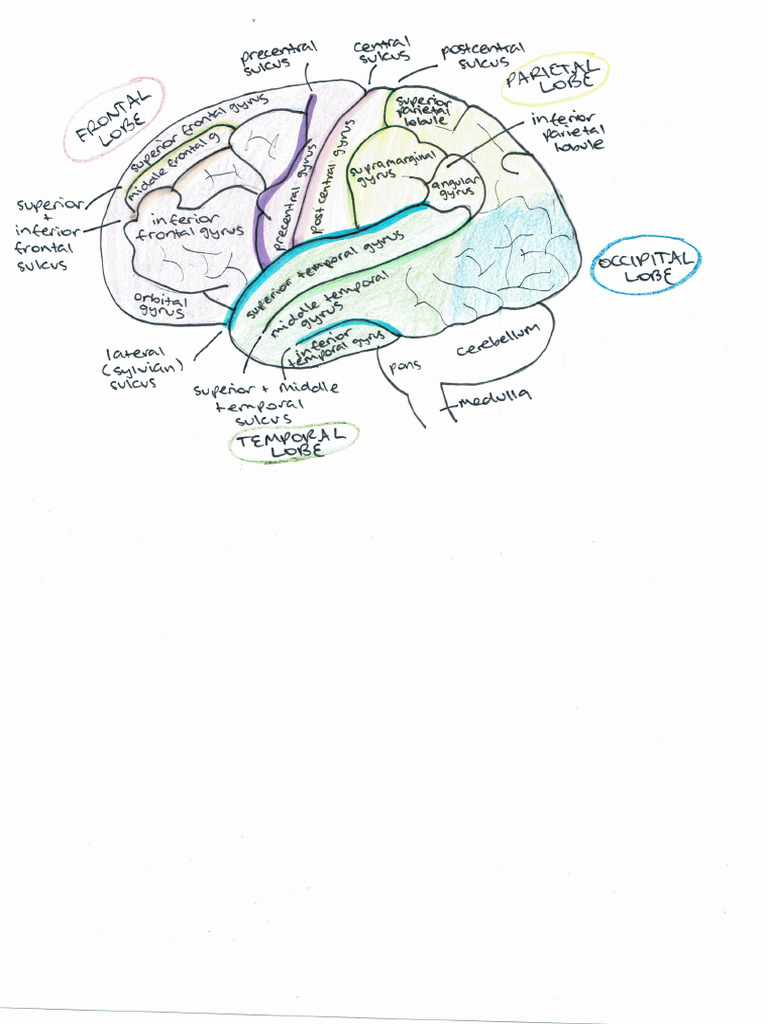 precentral
sulcus
central
sulcus
postcentral
sulcus
PARIETAL
LOBE
FRONTAL
LOBE
superior frontal gyrus
middle frontal g
superior
parietal
lobule
inferior
parietal
lobule
supramarginal
gyrus
angular
gyrus
precentral gyrus
postcentral gyrus
superior
+
inferior
frontal
sulcus
inferior
frontal gyrus
OCCIPITAL
LOBE
superior temporal gyrus
middle temporal
gyrus
orbital
gyrus
inferior
temporal gyrus
lateral
(sylvian)
sulcus
pons
cerebellum
medulla
superior + middle
temporal
sulcus
TEMPORAL
LOBE